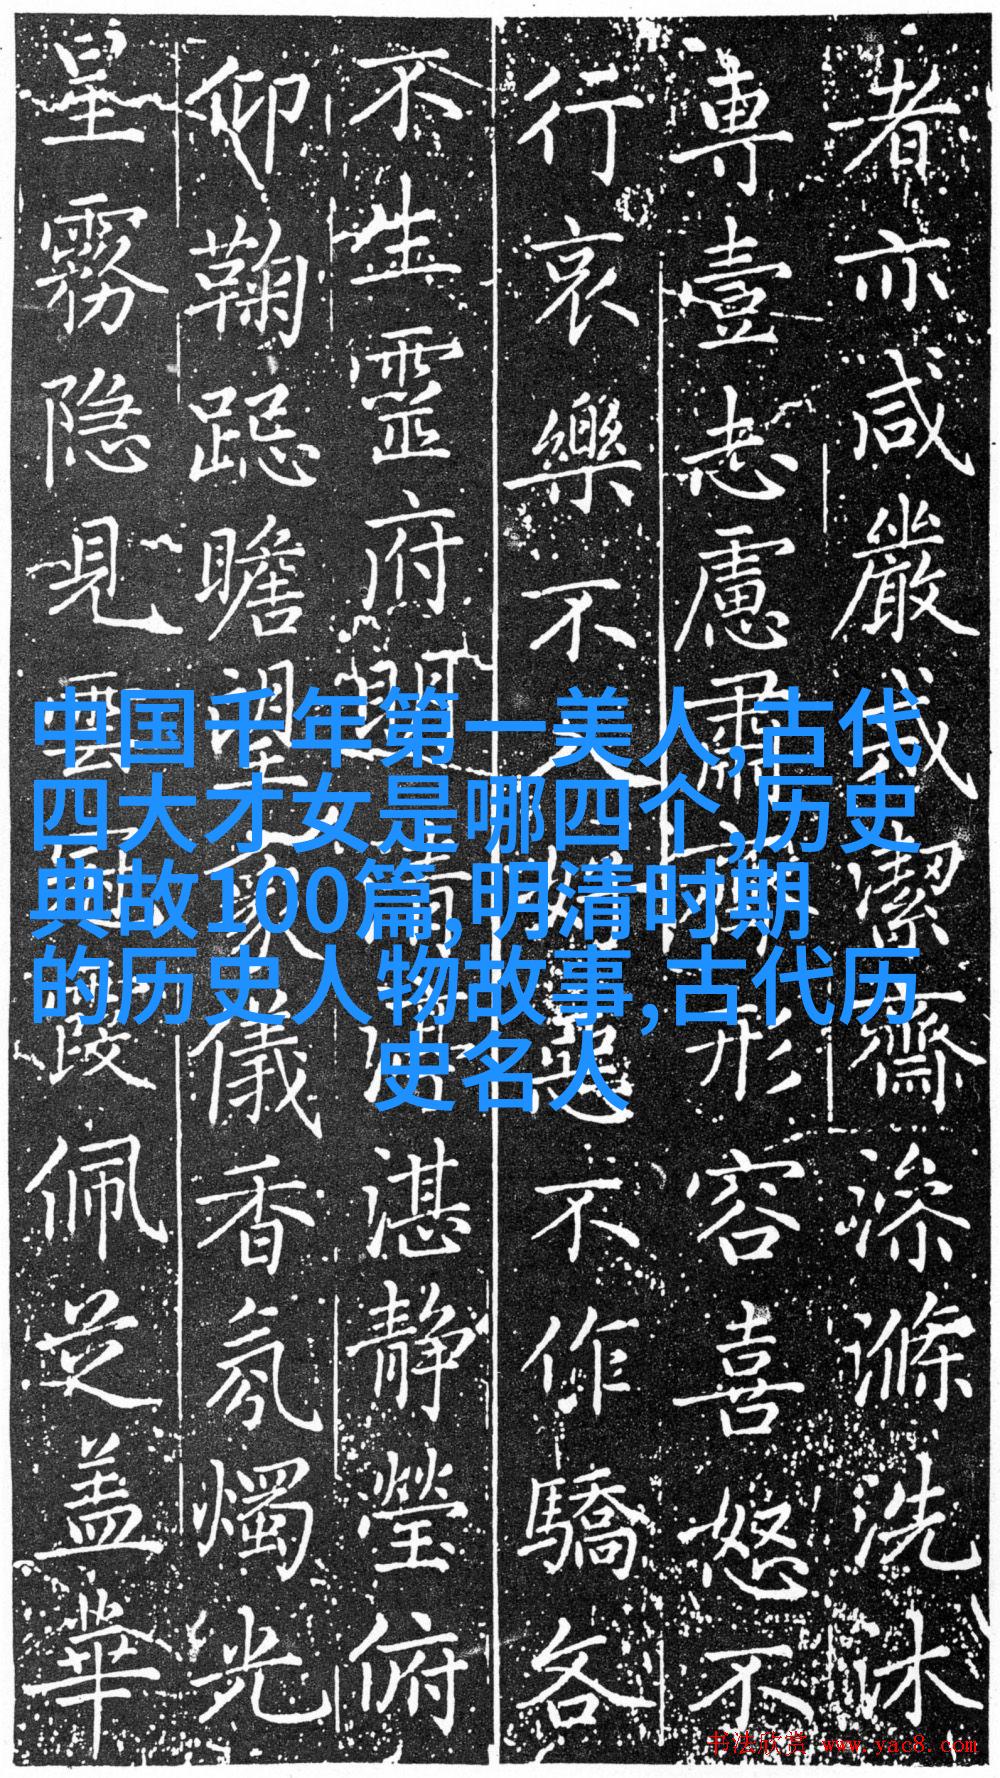 者亦咸嚴潔齋滌洗沐
專壹志慮肅形容喜怒不
行哀樂不不作驕各
不生靈府湛靜瑩俯
仰鞠跽瞻望儀香氛燭光
星霧隐見雲佩芝盖華
中国千年第一美人,古代
四大才女是哪四个,历史
典故100篇,明清时期
的历史人物故事,古代历
史名人
书法欣赏 www.yac8.com